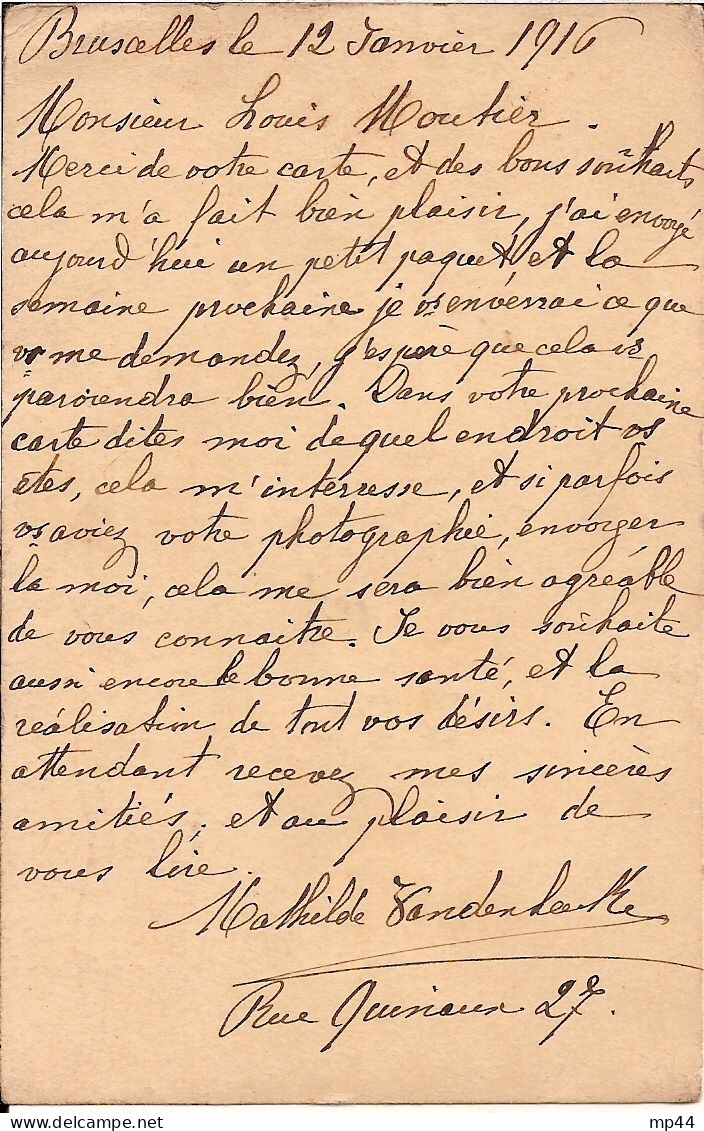 Bruxelles le 12 Janvier 1916
Monsieur Louis Moutier.
Merci de votre carte, et des bons souhaits
cela m'a fait bien plaisir, j'ai envoyé
aujourd'hui un petit paquet, et la
semaine prochaine je vs enverrai ce que
vs me demandez, j'espère que cela vs
parviendra bien. Dans votre prochaine
carte dites moi de quel endroit vs
etes, cela m'interresse, et si parfois
vs aviez votre photographie, envoyer
la moi, cela me sera bien agréable
de vous connaitre. Je vous souhaite
aussi encore le bonne santé, et la
réalisation de tout vos désirs. En
attendant recevez mes sincères
amitiés, et au plaisir de
vous lire.
Mathilde
Rue Quinaux 27.
delcampe.net
mp44